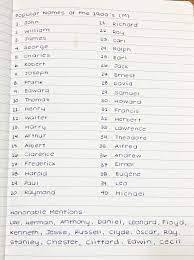 Popular Names of the 1900's (M)
1. John 21. Richard
2. William 22. Roy
3. James 23. Carl
4. George 24. Ralph
5. Charles 25. Earl
6. Robert 26. Jack
7. Joseph 27. Ernest
8. Frank 28. David
9. Edward 29. Samuel
10. Thomas 30. Howard
11. Henry 31. Francis
12. Walter 32. Herbert
13. Harry 33. Lawrence
14. Arthur 34. Theodore
15. Albert 35. Alfred
16. Clarence 36. Andrew
17. Frederick 37. Elmer
18. Harold 38. Eugene
19. Paul 39. Louis
20. Raymond 40. Michael
Honorable Mentions
Lee, Herman, Anthony, Daniel, Leonard, Floyd,
Kenneth, Jesse, Russell, Clyde, Oscar, Ray,
Stanley, Chester, Clifford, Edwin, Cecil